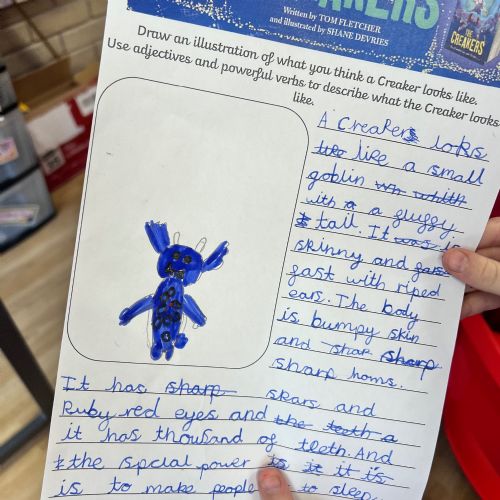 CREAKERS
Written by TOM FLETCHER
and illustrated by SHANE DEVRIES
THE CREAKERS
Draw an illustration of what you think a Creaker looks like.
Use adjectives and powerful verbs to describe what the Creaker looks
like.
A Creakers loks
like like a small
goblin wh whith
with a a fluffy
t tail. It was is
skinny and fas
fast with riped
ears. The body
is bumpy skin
and shar sharp
sharp horns.
It has sharp skars and
Ruby red eyes and the teeth a
it has thousand of teeth. And
the spcial power is it it is
is to make people to sleep